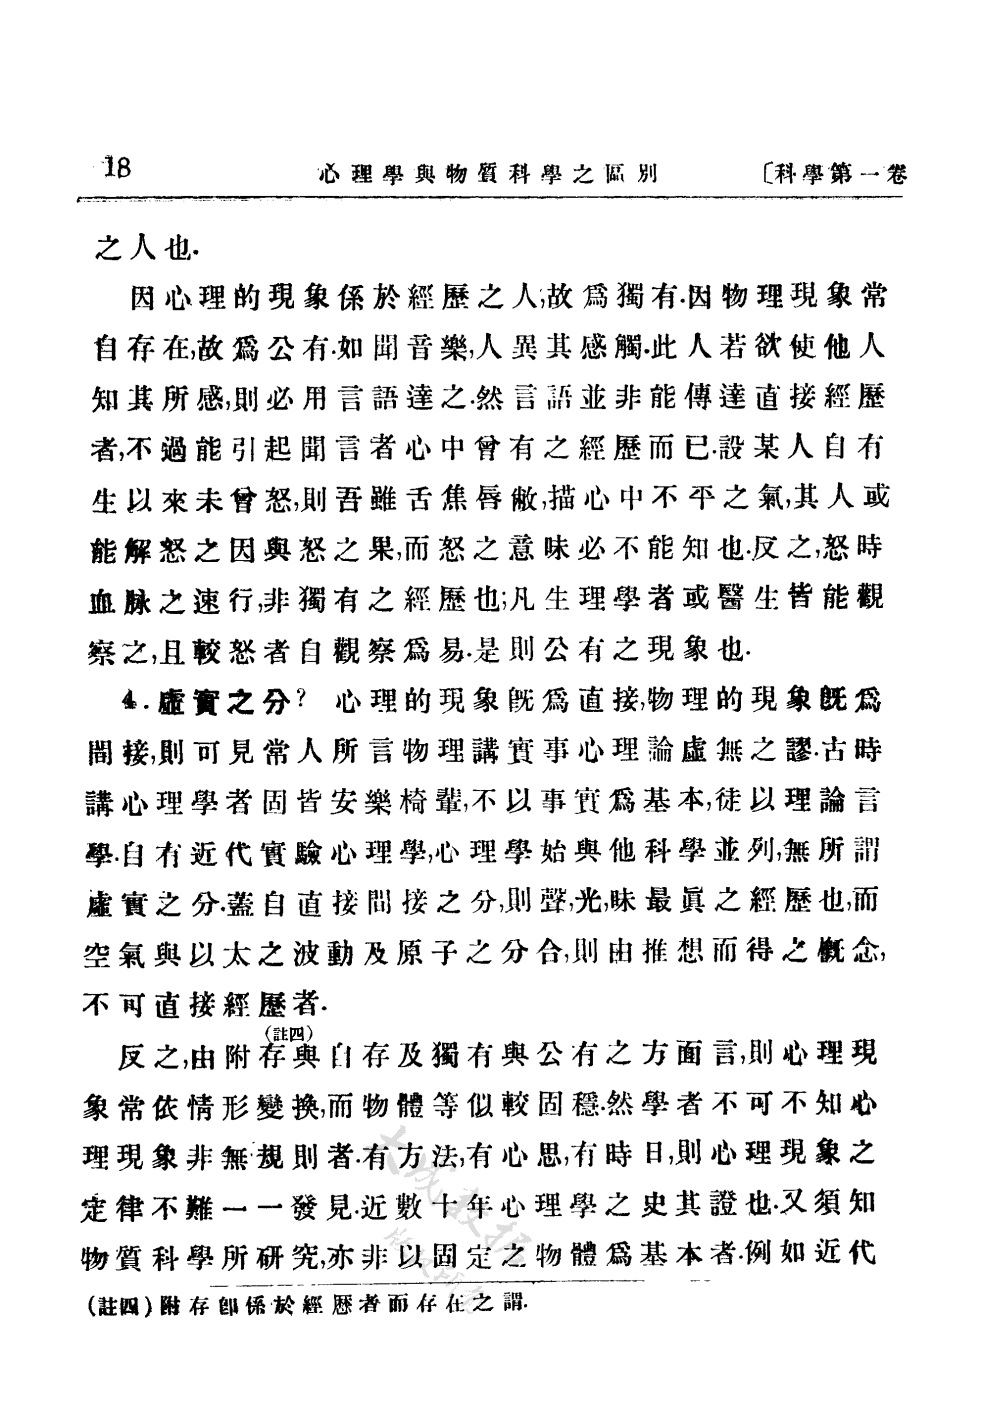 18 心理學與物質科學之區別 〔科學第一卷
之人也.
因心理的現象係於經歷之人,故爲獨有.因物理現象常
自存在,故爲公有.如聞音樂,人異其感觸.此人若欲使他人
知其所感,則必用言語達之.然言語並非能傳達直接經歷
者,不過能引起聞言者心中曾有之經歷而已.設某人自有
生以來未曾怒,則吾雖舌焦唇敝,描心中不平之氣,其人或
能解怒之因與怒之果,而怒之意味必不能知也.反之,怒時
血脉之速行,非獨有之經歷也;凡生理學者或醫生皆能觀
察之,且較怒者自觀察爲易.是則公有之現象也.
4.虛實之分? 心理的現象旣爲直接,物理的現象旣爲
間接,則可見常人所言物理講實事心理論虛無之謬.古時
講心理學者固皆安樂椅輩,不以事實爲基本,徒以理論言
學.自有近代實驗心理學,心理學始與他科學並列,無所謂
虛實之分.蓋自直接間接之分,則聲,光,味最眞之經歷也,而
空氣與以太之波動及原子之分合,則由推想而得之概念,
不可直接經歷者.
反之,由附存(註四)與自存及獨有與公有之方面言,則心理現
象常依情形變換,而物體等似較固穩.然學者不可不知心
理現象非無規則者.有方法,有心思,有時日,則心理現象之
定律不難一一發見.近數十年心理學之史其證也.又須知
物質科學所研究,亦非以固定之物體爲基本者.例如近代
(註四)附存卽係於經歷者而存在之謂.